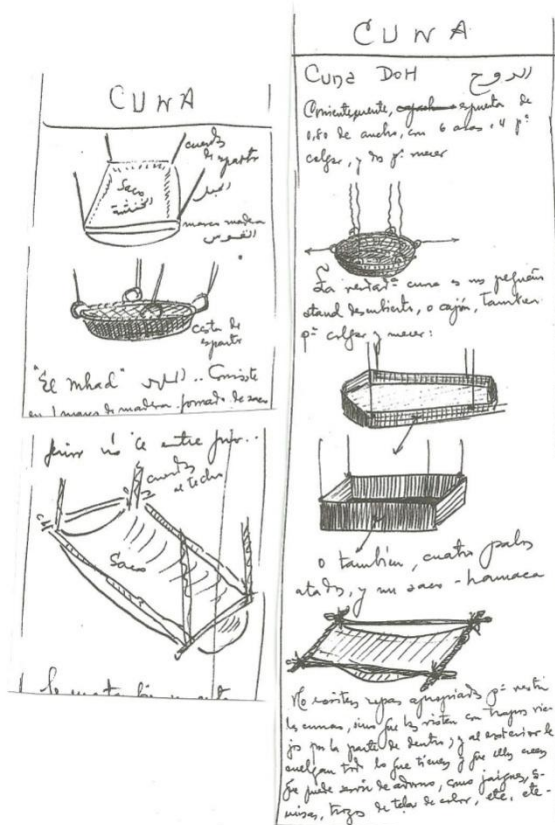 CUNA
cuerda
de esparto
Saco
الحبل
marco madera
القوس
cesta de
esparto
"El mhad" المهد .. Consiste
en 1 marco de madera formado de saco
cuerdas
al techo
Saco
CUNA
Cuna DOH الدوح
Corrientemente, espuerta de
0,80 de ancho, con 6 asas, 4 pª
colgar, y dos pª mecer
La verdadª cuna es un pequeño
ataud descubierto, o cajón, tambien
pª colgar y mecer:
o también, cuatro palos
atados, y un saco-hamaca
No existen ropas apropiadas pª vestir
las cunas, sino que las visten con trapos vie-
jos por la parte de dentro, y al exterior le
cuelgan todo lo que tienen y que ellos creen
que puede servir de adorno, como jaiques, ca-
misas, trozos de tela de color, etc, etc-